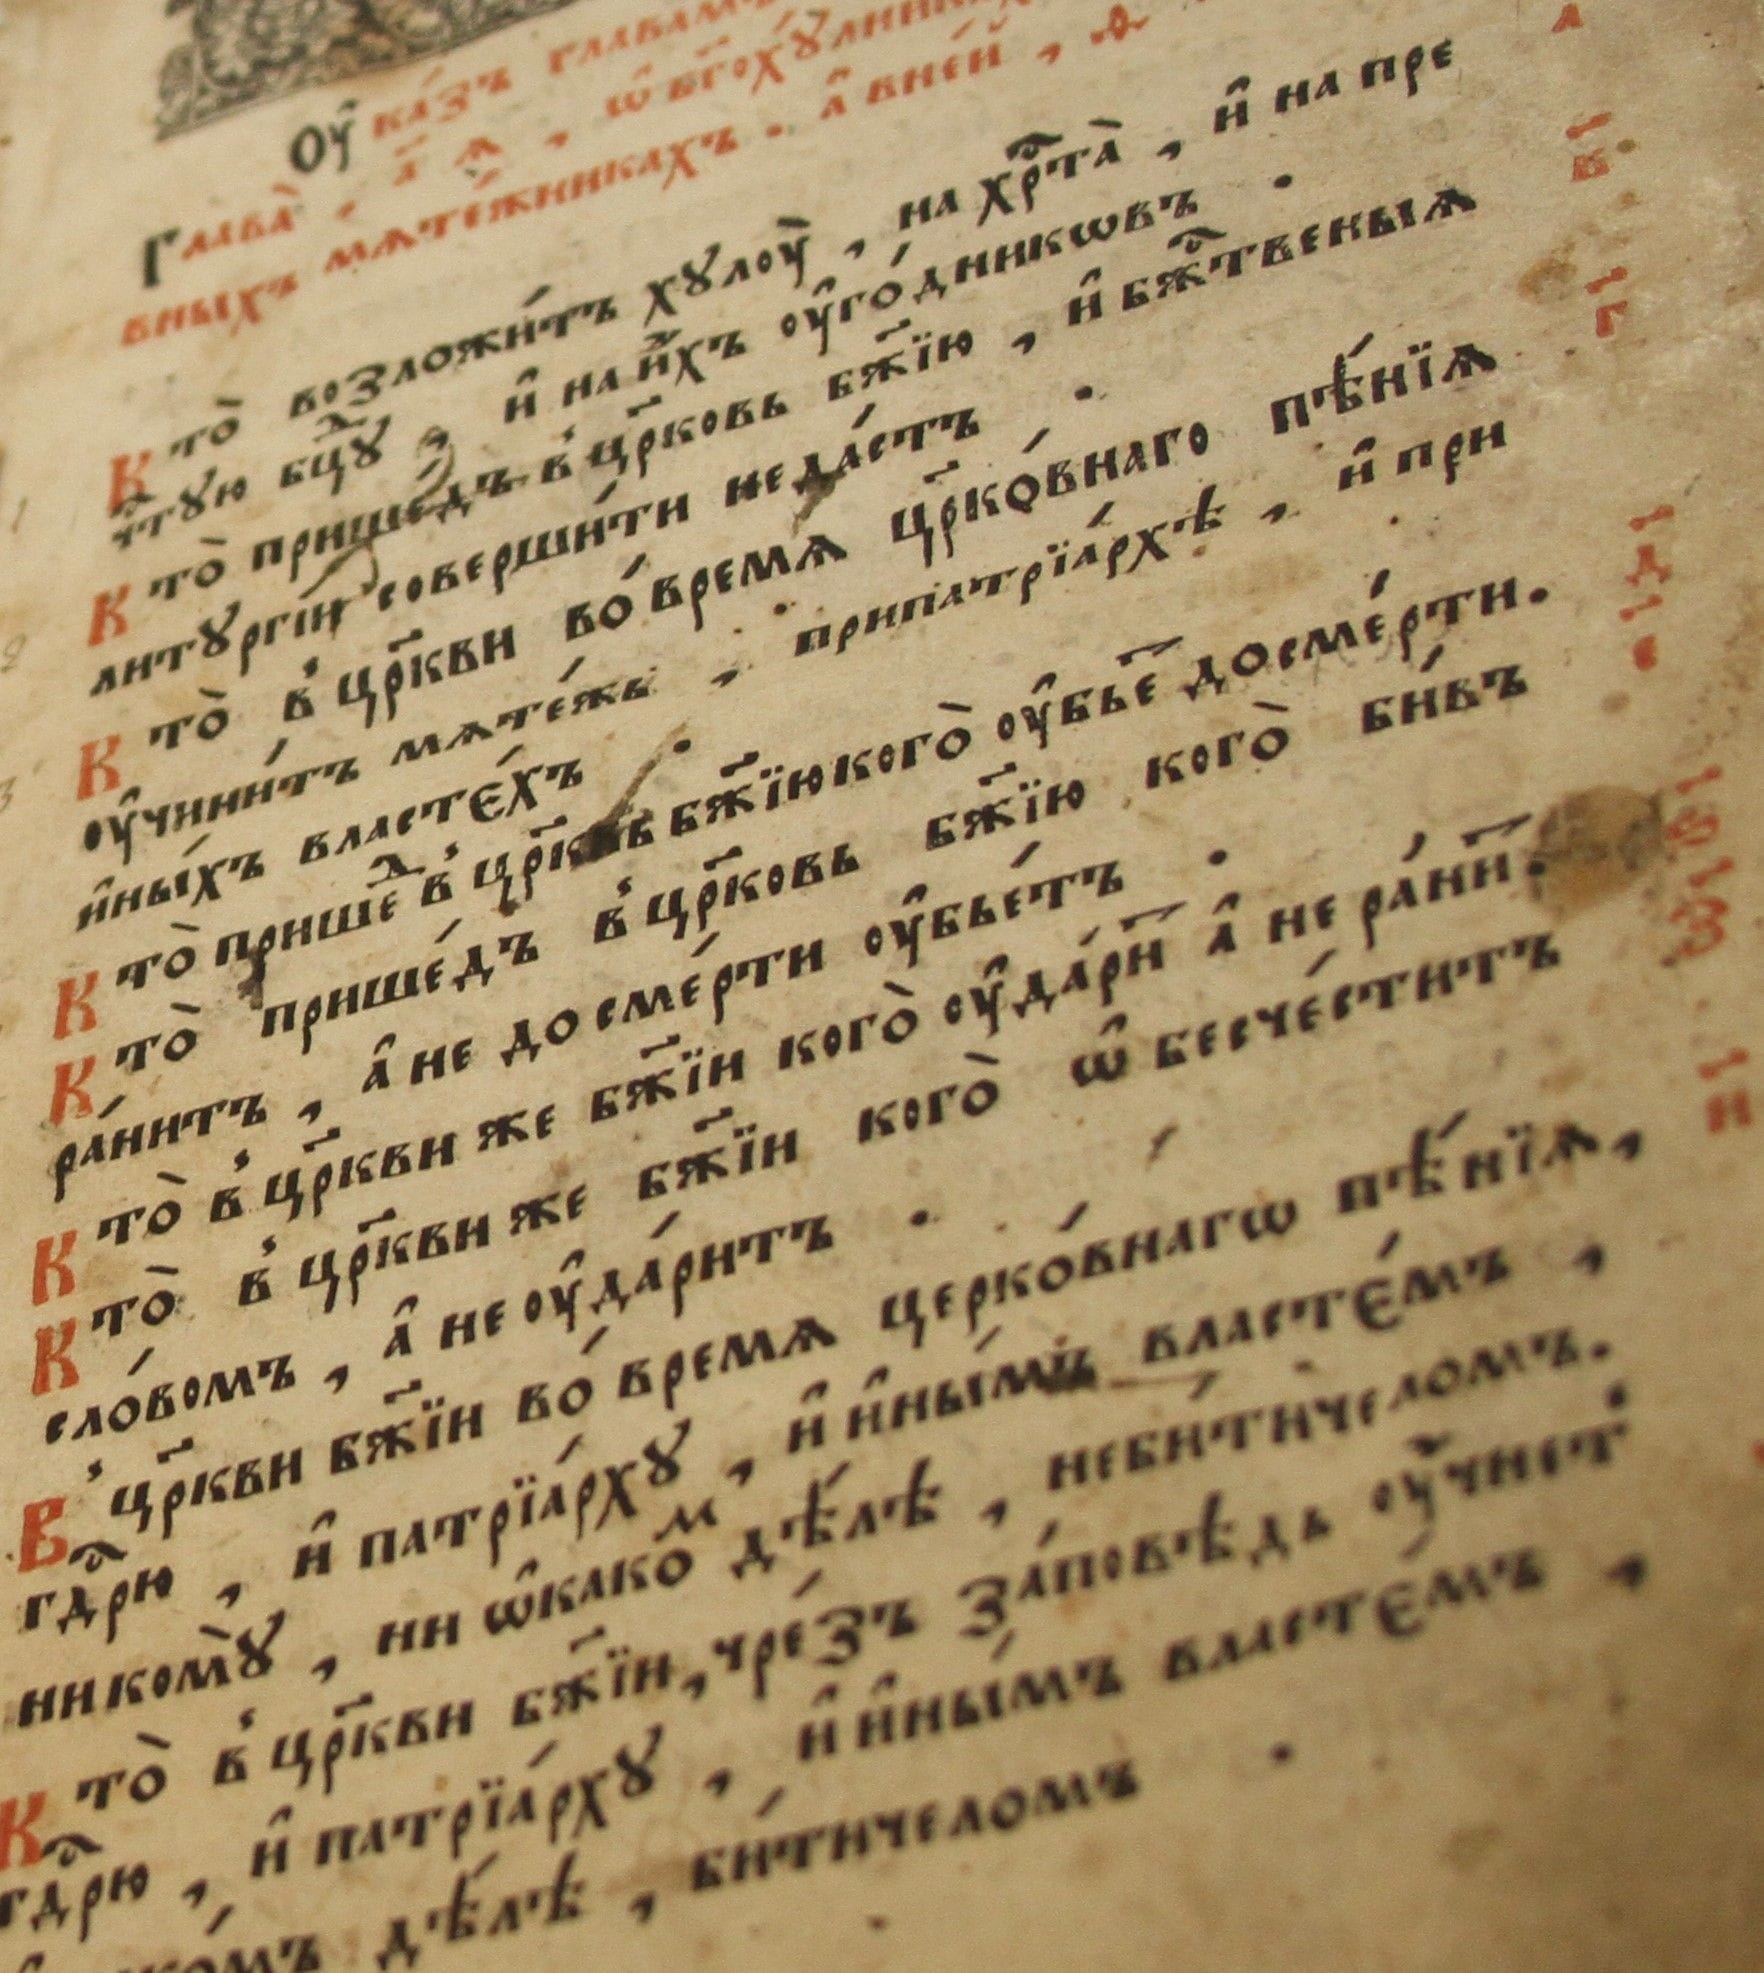 Оу҆ка́зъ глава́мъ
Глава̀, а҃ ѧ, ѡ҆ бг҃охꙋлникахъ
вныхъ мѧте́жникахъ. а҆ вне́й,
Кто̀ возложи́тъ хꙋлоу̀, на хрⷭ҇та̀, и҆ на пре
чⷭ҇тꙋю бцⷣꙋ, и҆ на и҆́хъ оу҆го́дникѡвъ.
Кто̀ прише́дъ в̾ цр҃ковь бж҃їю, и҆ бжⷭ҇твеныѧ
литꙋргі́и соверши́ти неда́стъ.
Кто̀ в̾ цр҃кви во́ времѧ цр҃ко́внаго пѣ́нїѧ
оу҆чини́тъ мѧте́жь, припатрїа́рхѣ, и҆ при
и҆ны́хъ власте́хъ.
Кто̀ прише́ⷣ в̾ цр҃квь бж҃їю кого̀ оу҆бье҃ досме́рти.
Кто̀ прише́дъ в̾ цр҃ковь бж҃їю кого̀ би́въ
ра́нитъ, а҆ не досме́рти оу҆бье́тъ.
Кто̀ в̾ цр҃кви же бж҃їи кого̀ оу҆да́ри҃ а҆ не ра́ни҃.
Кто̀ в̾ цр҃кви же бж҃їи кого̀ ѡ҆бесче́ститъ
сло́вомъ, а҆ не оу҆да́ритъ.
В̾ цр҃кви бж҃їи во́ времѧ церко́внагѡ пѣ́нїѧ,
гдⷭ҇рю, и҆ патрїа́рхꙋ, и҆ и҆ны́мъ власте́мъ,
никомꙋ̀, ни ѡ҆како́ⷨ дѣ́лѣ, неби́тичеломъ.
Кто̀ в̾ цр҃кви бж҃їи, чре́зъ за́повѣдь оу҆чнет̾
гдⷭ҇рю, и҆ патрїа́рхꙋ, и҆ и҆ны́мъ власте́мъ,
дѣ́лѣ, би́тичеломъ
а
в҃
г҃
д҃
є҃
ѕ҃
з҃
и҃